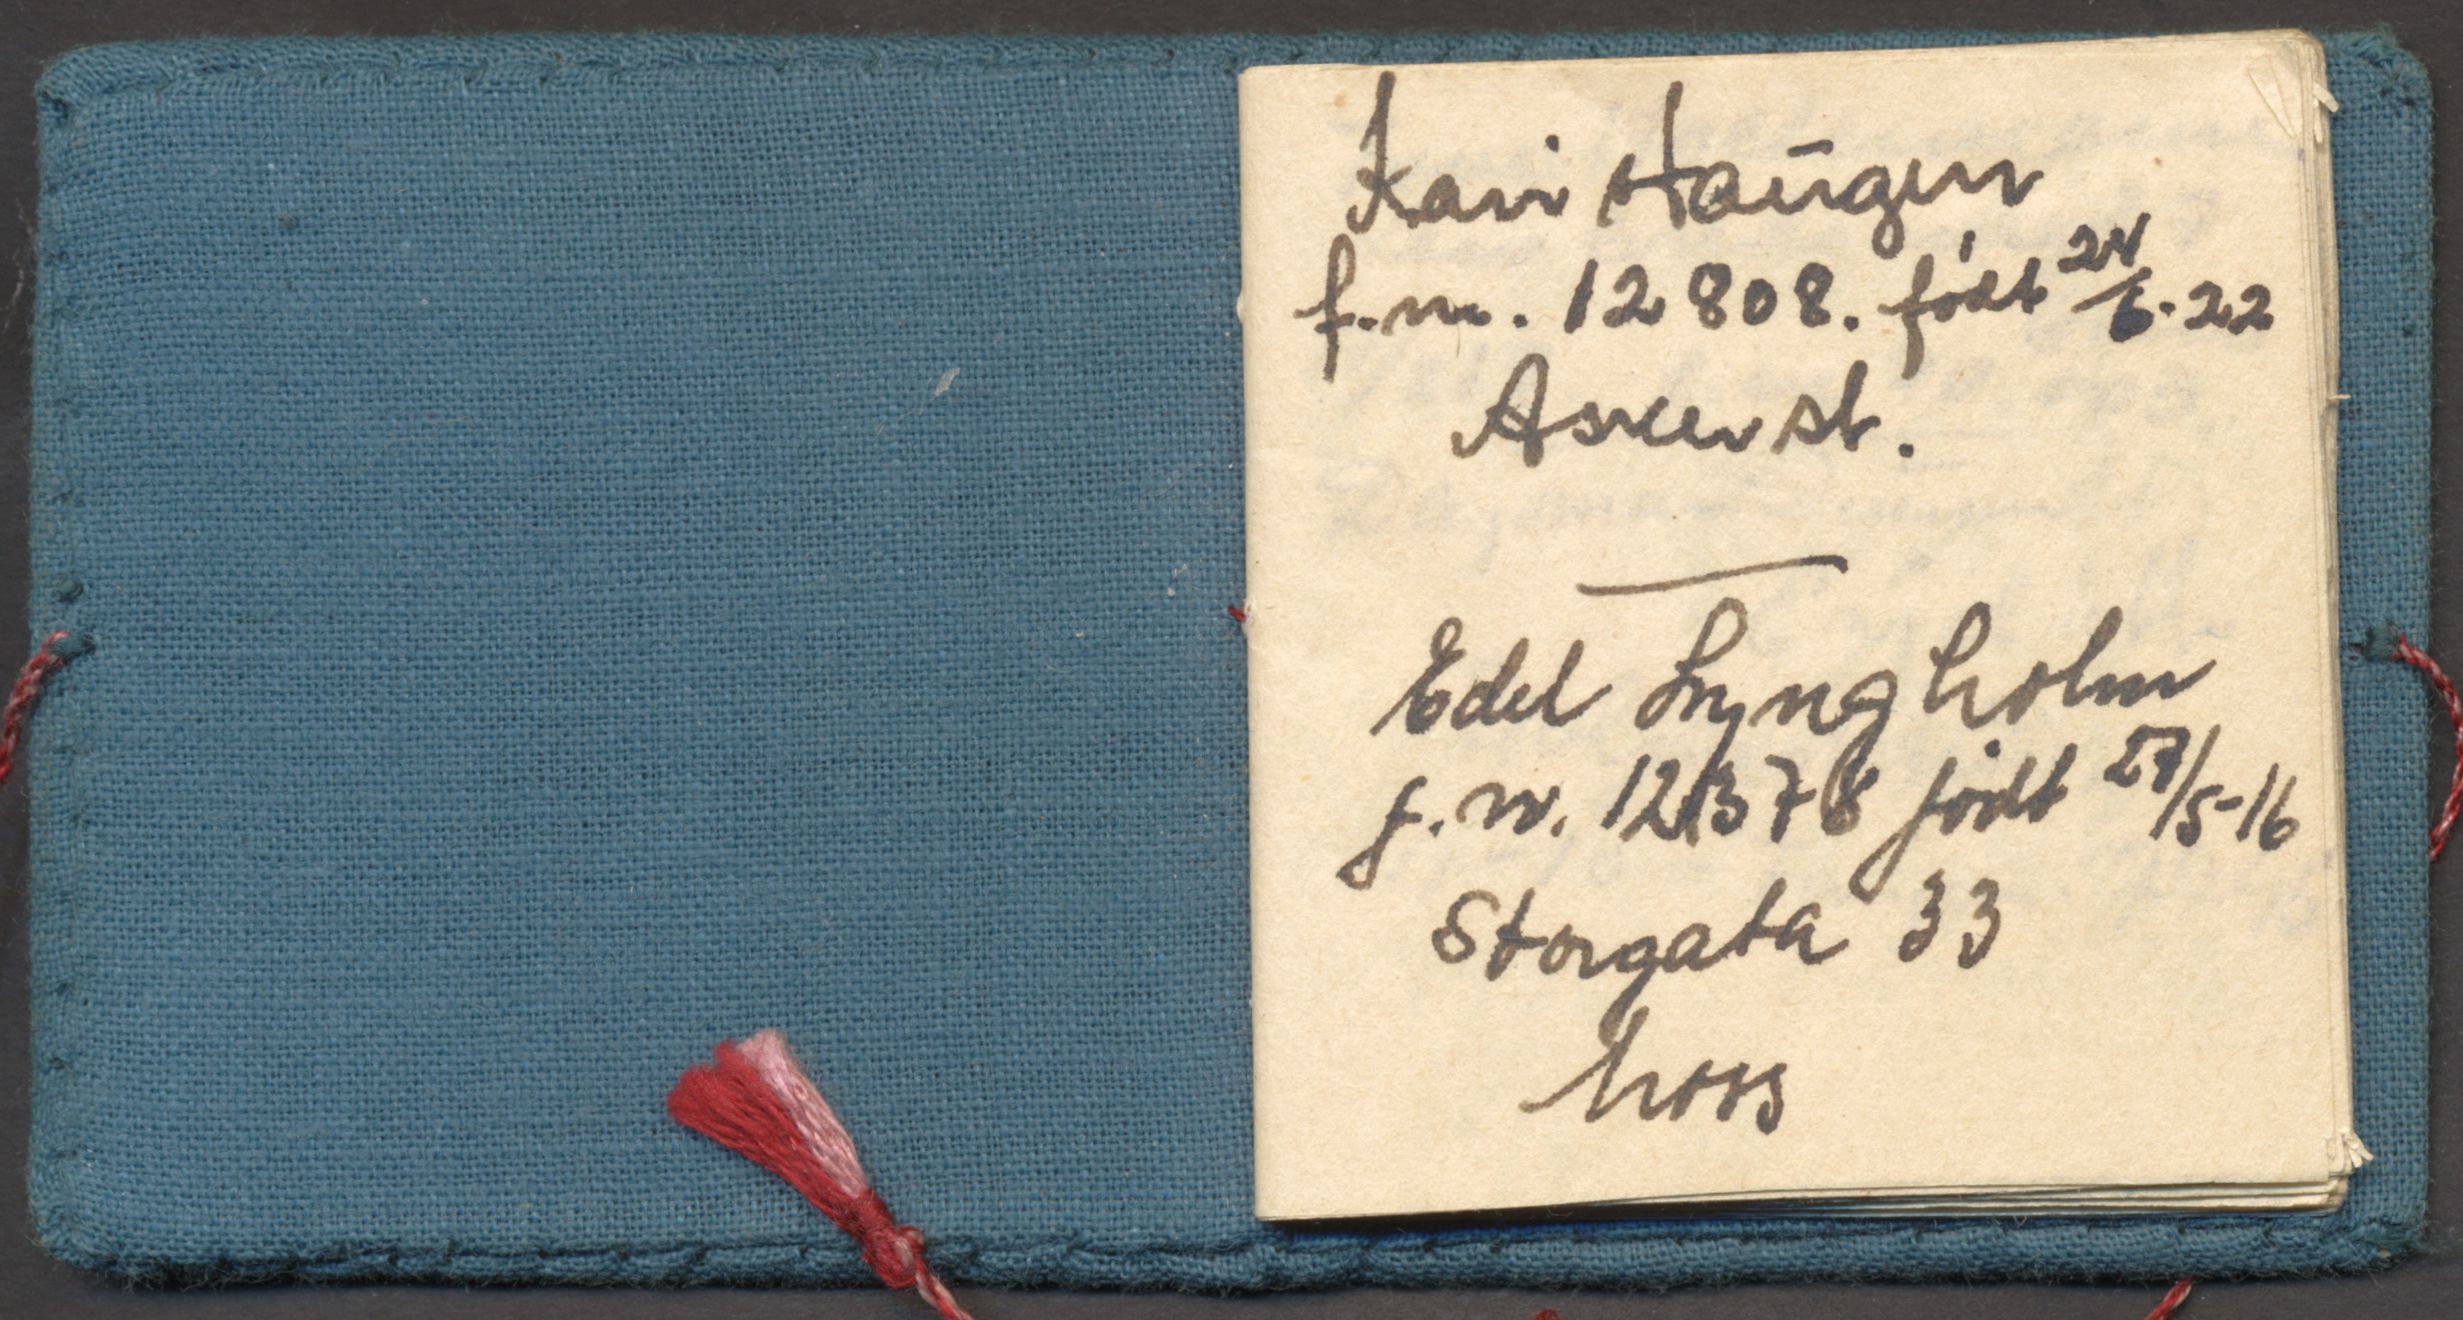 Kari Haugen
f.nr. 12808. født 24/6-22
Asker st.
Edel Lyngholm
f.nr. 12378 født 27/5-16
Storgata 33
Moss